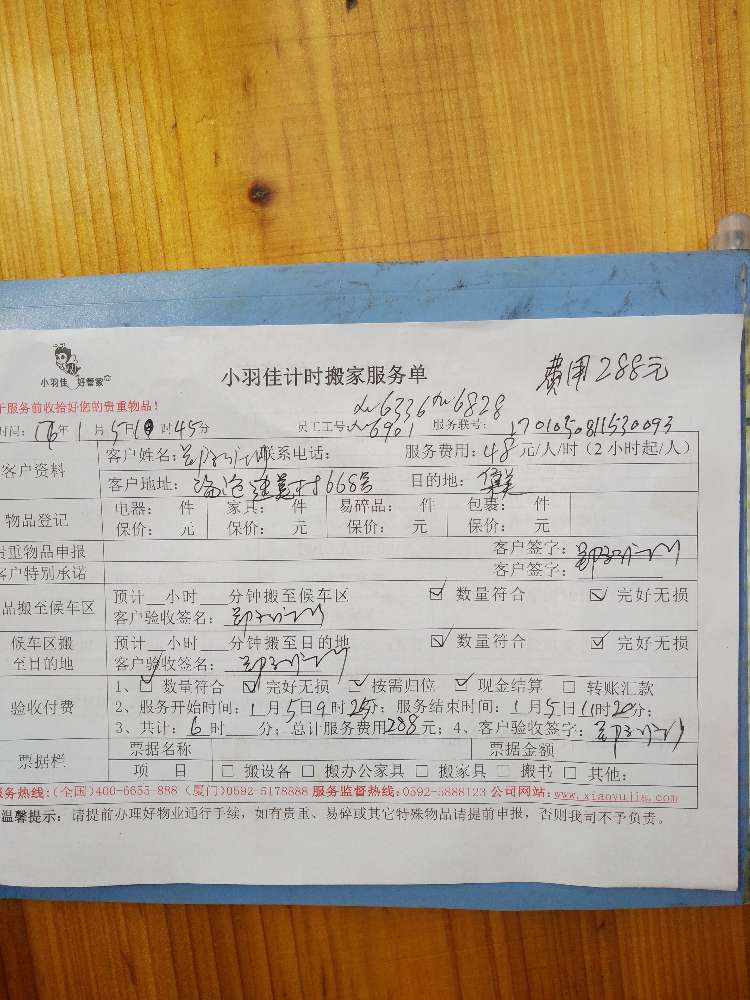 小羽佳 好管家
小羽佳计时搬家服务单
费用288元
于服务前收拾好您的贵重物品!
6336 6828
时间: 16年1月5日10时45分 员工工号: 6901 服务联号: 1701050811530093
客户资料
客户姓名: 联系电话: 服务费用: 48元/人/时 (2小时起/人)
客户地址: 668号 目的地: 集美
物品登记
电器: 件 家具: 件 易碎品: 件 包裹: 件
保价: 元 保价: 元 保价: 元 保价: 元
贵重物品申报 客户签字:
客户特别承诺 客户签字:
品搬至候车区
预计__小时___分钟搬至候车区 ☑ 数量符合 ☑ 完好无损
客户验收签名:
候车区搬至目的地
预计__小时___分钟搬至目的地 ☑ 数量符合 ☑ 完好无损
客户验收签名:
验收付费
1、☑ 数量符合 ☑ 完好无损 ☑ 按需归位 ☑ 现金结算 □ 转账汇款
2、服务开始时间: 1月5日9时25分; 服务结束时间: 1月5日11时20分;
3、共计: 6时___分; 总计服务费用288元; 4、客户验收签字:
票据栏
票据名称 票据金额
项 目 □ 搬设备 □ 搬办公家具 □ 搬家具 □ 搬书 □ 其他:
服务热线:(全国)400-6655-888 (厦门)0592-5178888 服务监督热线:0592-5888123 公司网站:www.xiaoyujia.com
温馨提示: 请提前办理好物业通行手续,如有贵重、易碎或其它特殊物品请提前申报,否则我司不予负责。